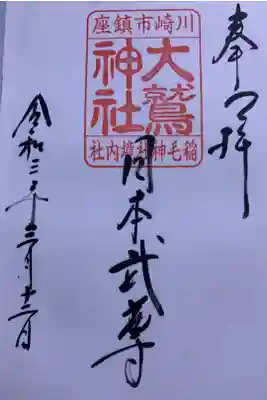 奉拝
川崎市鎮座
大鷲神社
稲毛神社境内社
日本武尊
令和二年十二月十二日